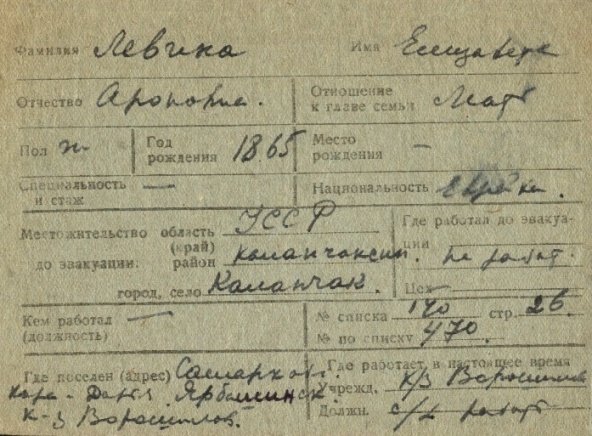 Фамилия Левина Имя Елизавета
Отчество Ароновна. Отношение к главе семьи Мать
Пол ж. Год рождения 1865 Место рождения —
Специальность и стаж — Национальность Еврейка.
Местожительство область УССР Где работал до эвакуа-
(край) ции
до эвакуации: район Каланчакский. не работ.
город, село Каланчак. Цех
Кем работал — № списка 140 стр. 26.
(должность) № по списку 470.
Где поселен (адрес) Самарканд. Где работает в настоящее время
Кара-Дарья Учрежд. к/з Ворошилов
к-з Ворошилов. Должн. с/х работ